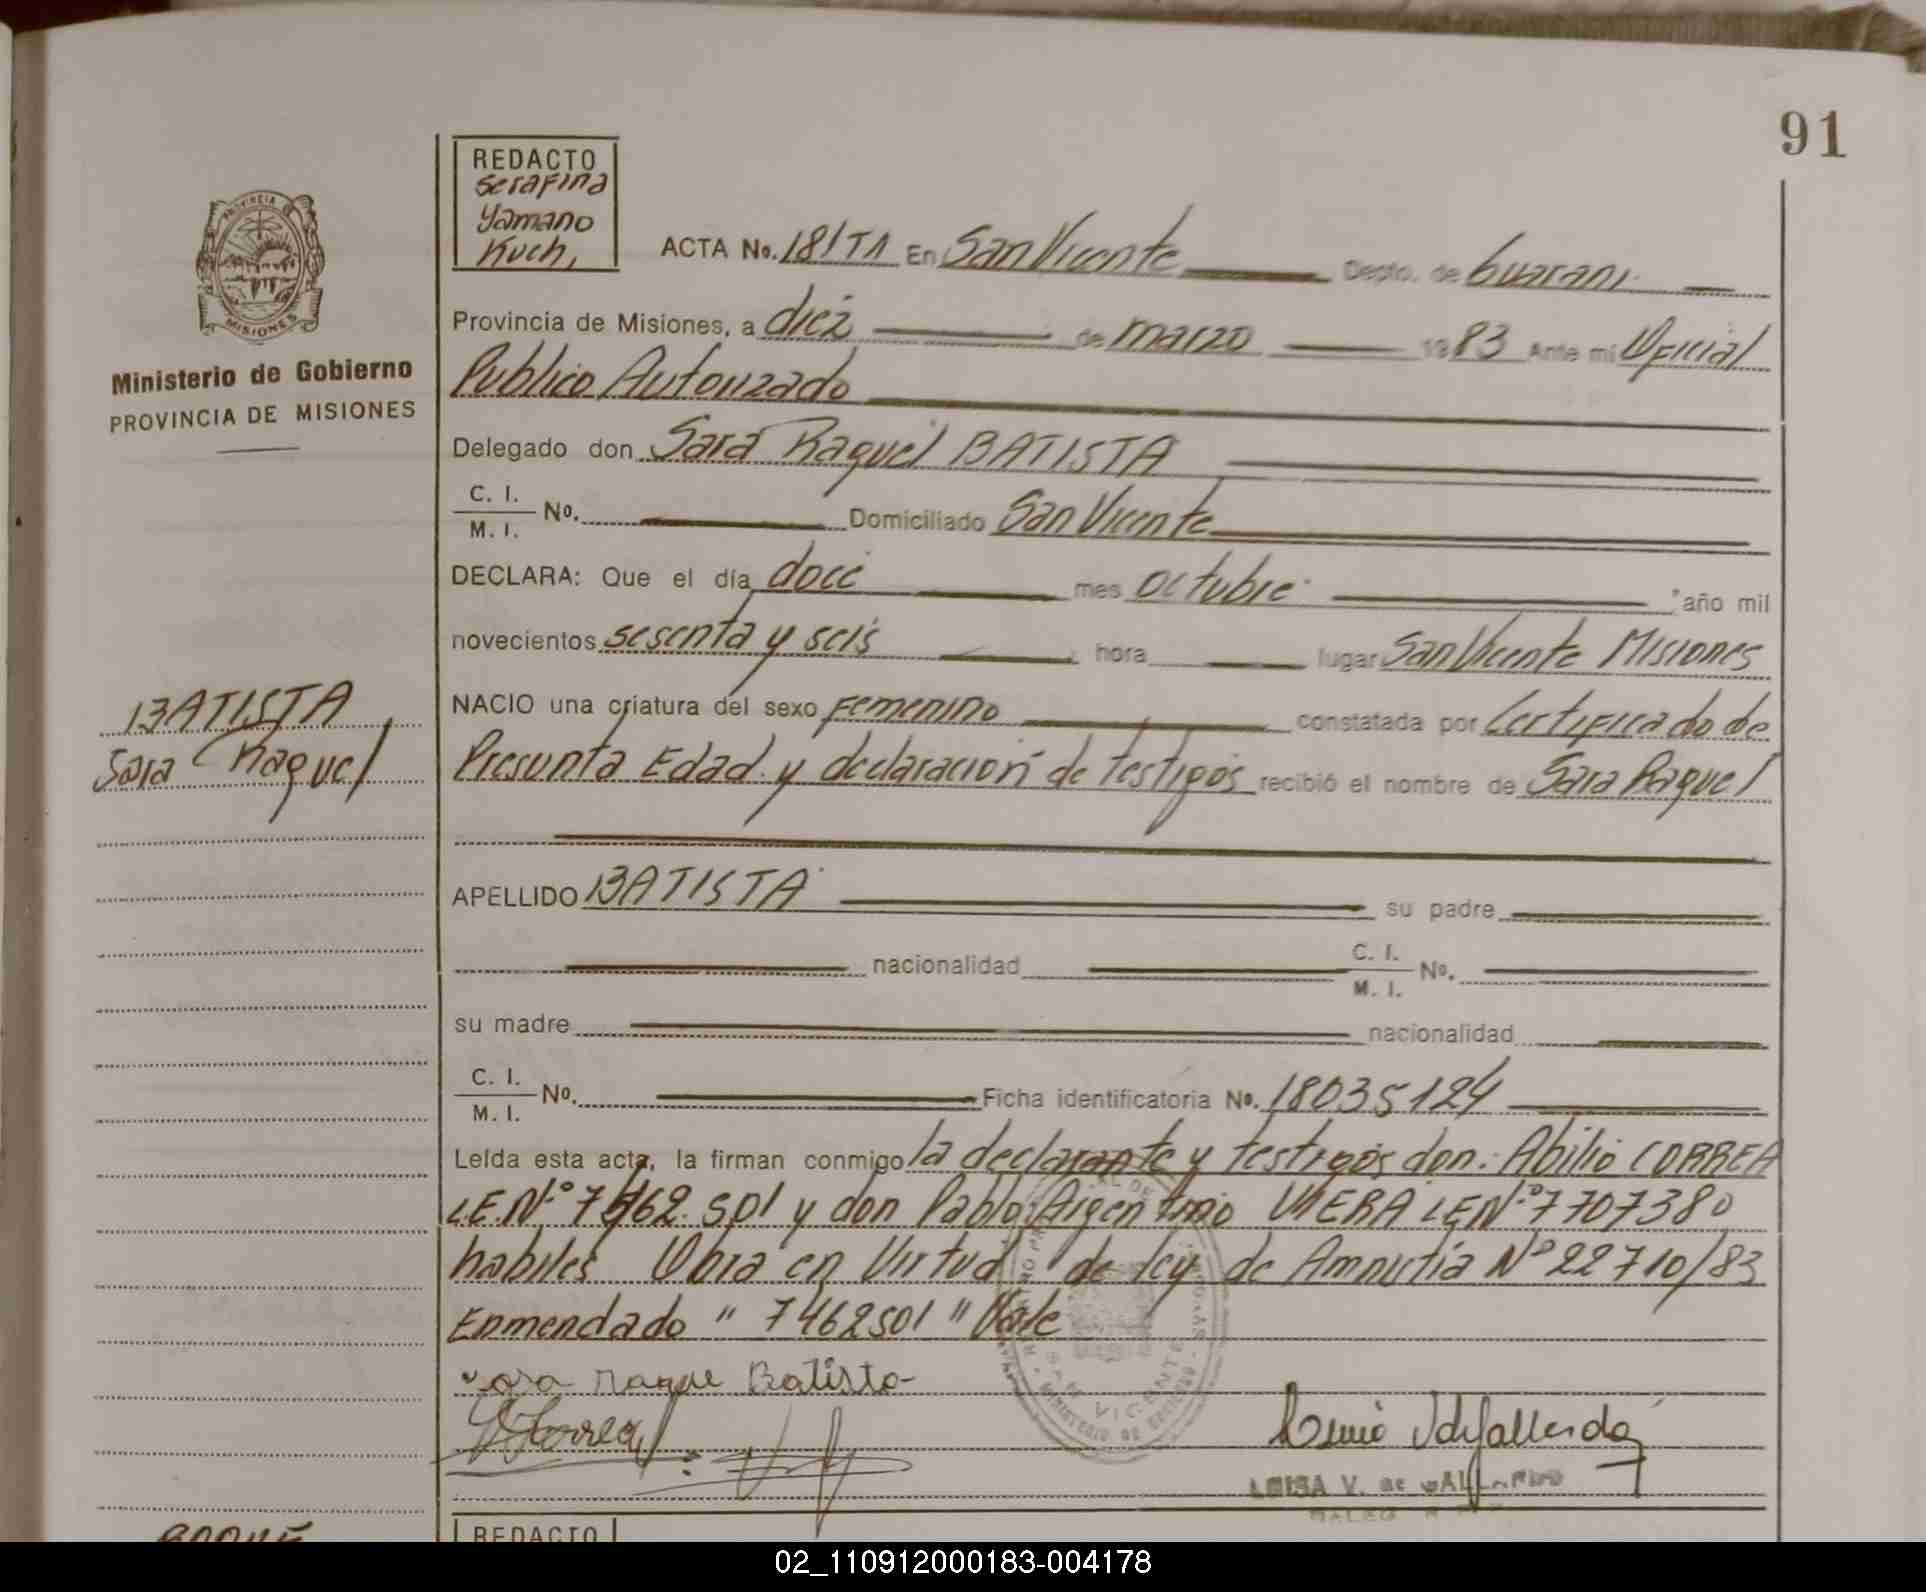 91
REDACTO
Serafina
Yamano
Kuch,
PROVINCIA DE
MISIONES
Ministerio de Gobierno
PROVINCIA DE MISIONES
ACTA No. 181 T1 En San Vicente Depto. de Guarani
Provincia de Misiones, a diez de marzo 1983 Ante mi Oficial
Publico Autorizado
Delegado don Sara Raquel BATISTA
C. I.
M. I. No. Domiciliado San Vicente
DECLARA: Que el día doce mes octubre año mil
novecientos sesenta y seis hora lugar San Vicente Misiones
BATISTA
Sara Raquel
NACIO una criatura del sexo Femenino constatada por Certificado de
Presunta Edad y declaración de testigos recibió el nombre de Sara Raquel
APELLIDO BATISTA su padre
nacionalidad C. I.
M. I. No.
su madre nacionalidad
C. I.
M. I. No. Ficha identificatoria No. 18035124
Leída esta acta, la firman conmigo la declarante y testigos don: Abilio CORREA
LE.Nº 7462.501 y don Pablo Argentino VIERA LE Nº 7707380
habiles Obra en Virtud de ley de Amnistia Nº 22710/83
Enmendado " 7462501 " Vale
Sara Raque Batista
Correa
LUISA V. de GALLARDO
REDACTO
ROQUE
02_110912000183-004178